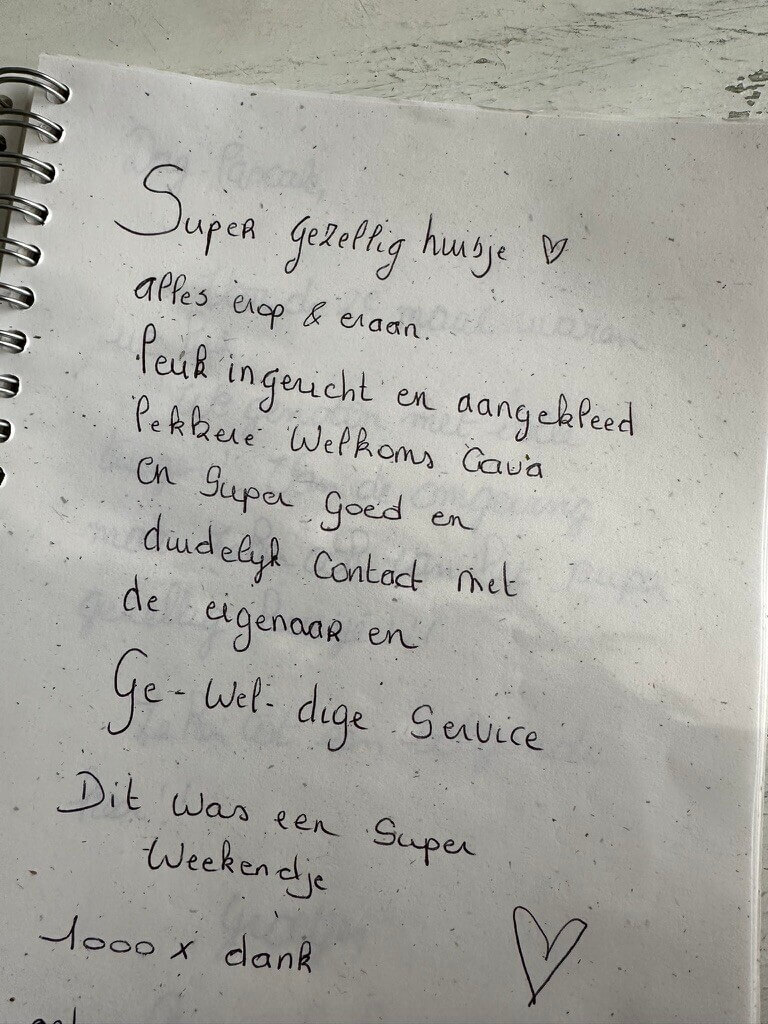 Super gezellig huisje ♡
alles erop & eraan.
leuk ingericht en aangekleed
lekkere Welkoms Cava
en super goed en
duidelyk Contact met
de eigenaar en
Ge-Wel-dige Service
Dit was een Super
Weekendje
1000 x dank